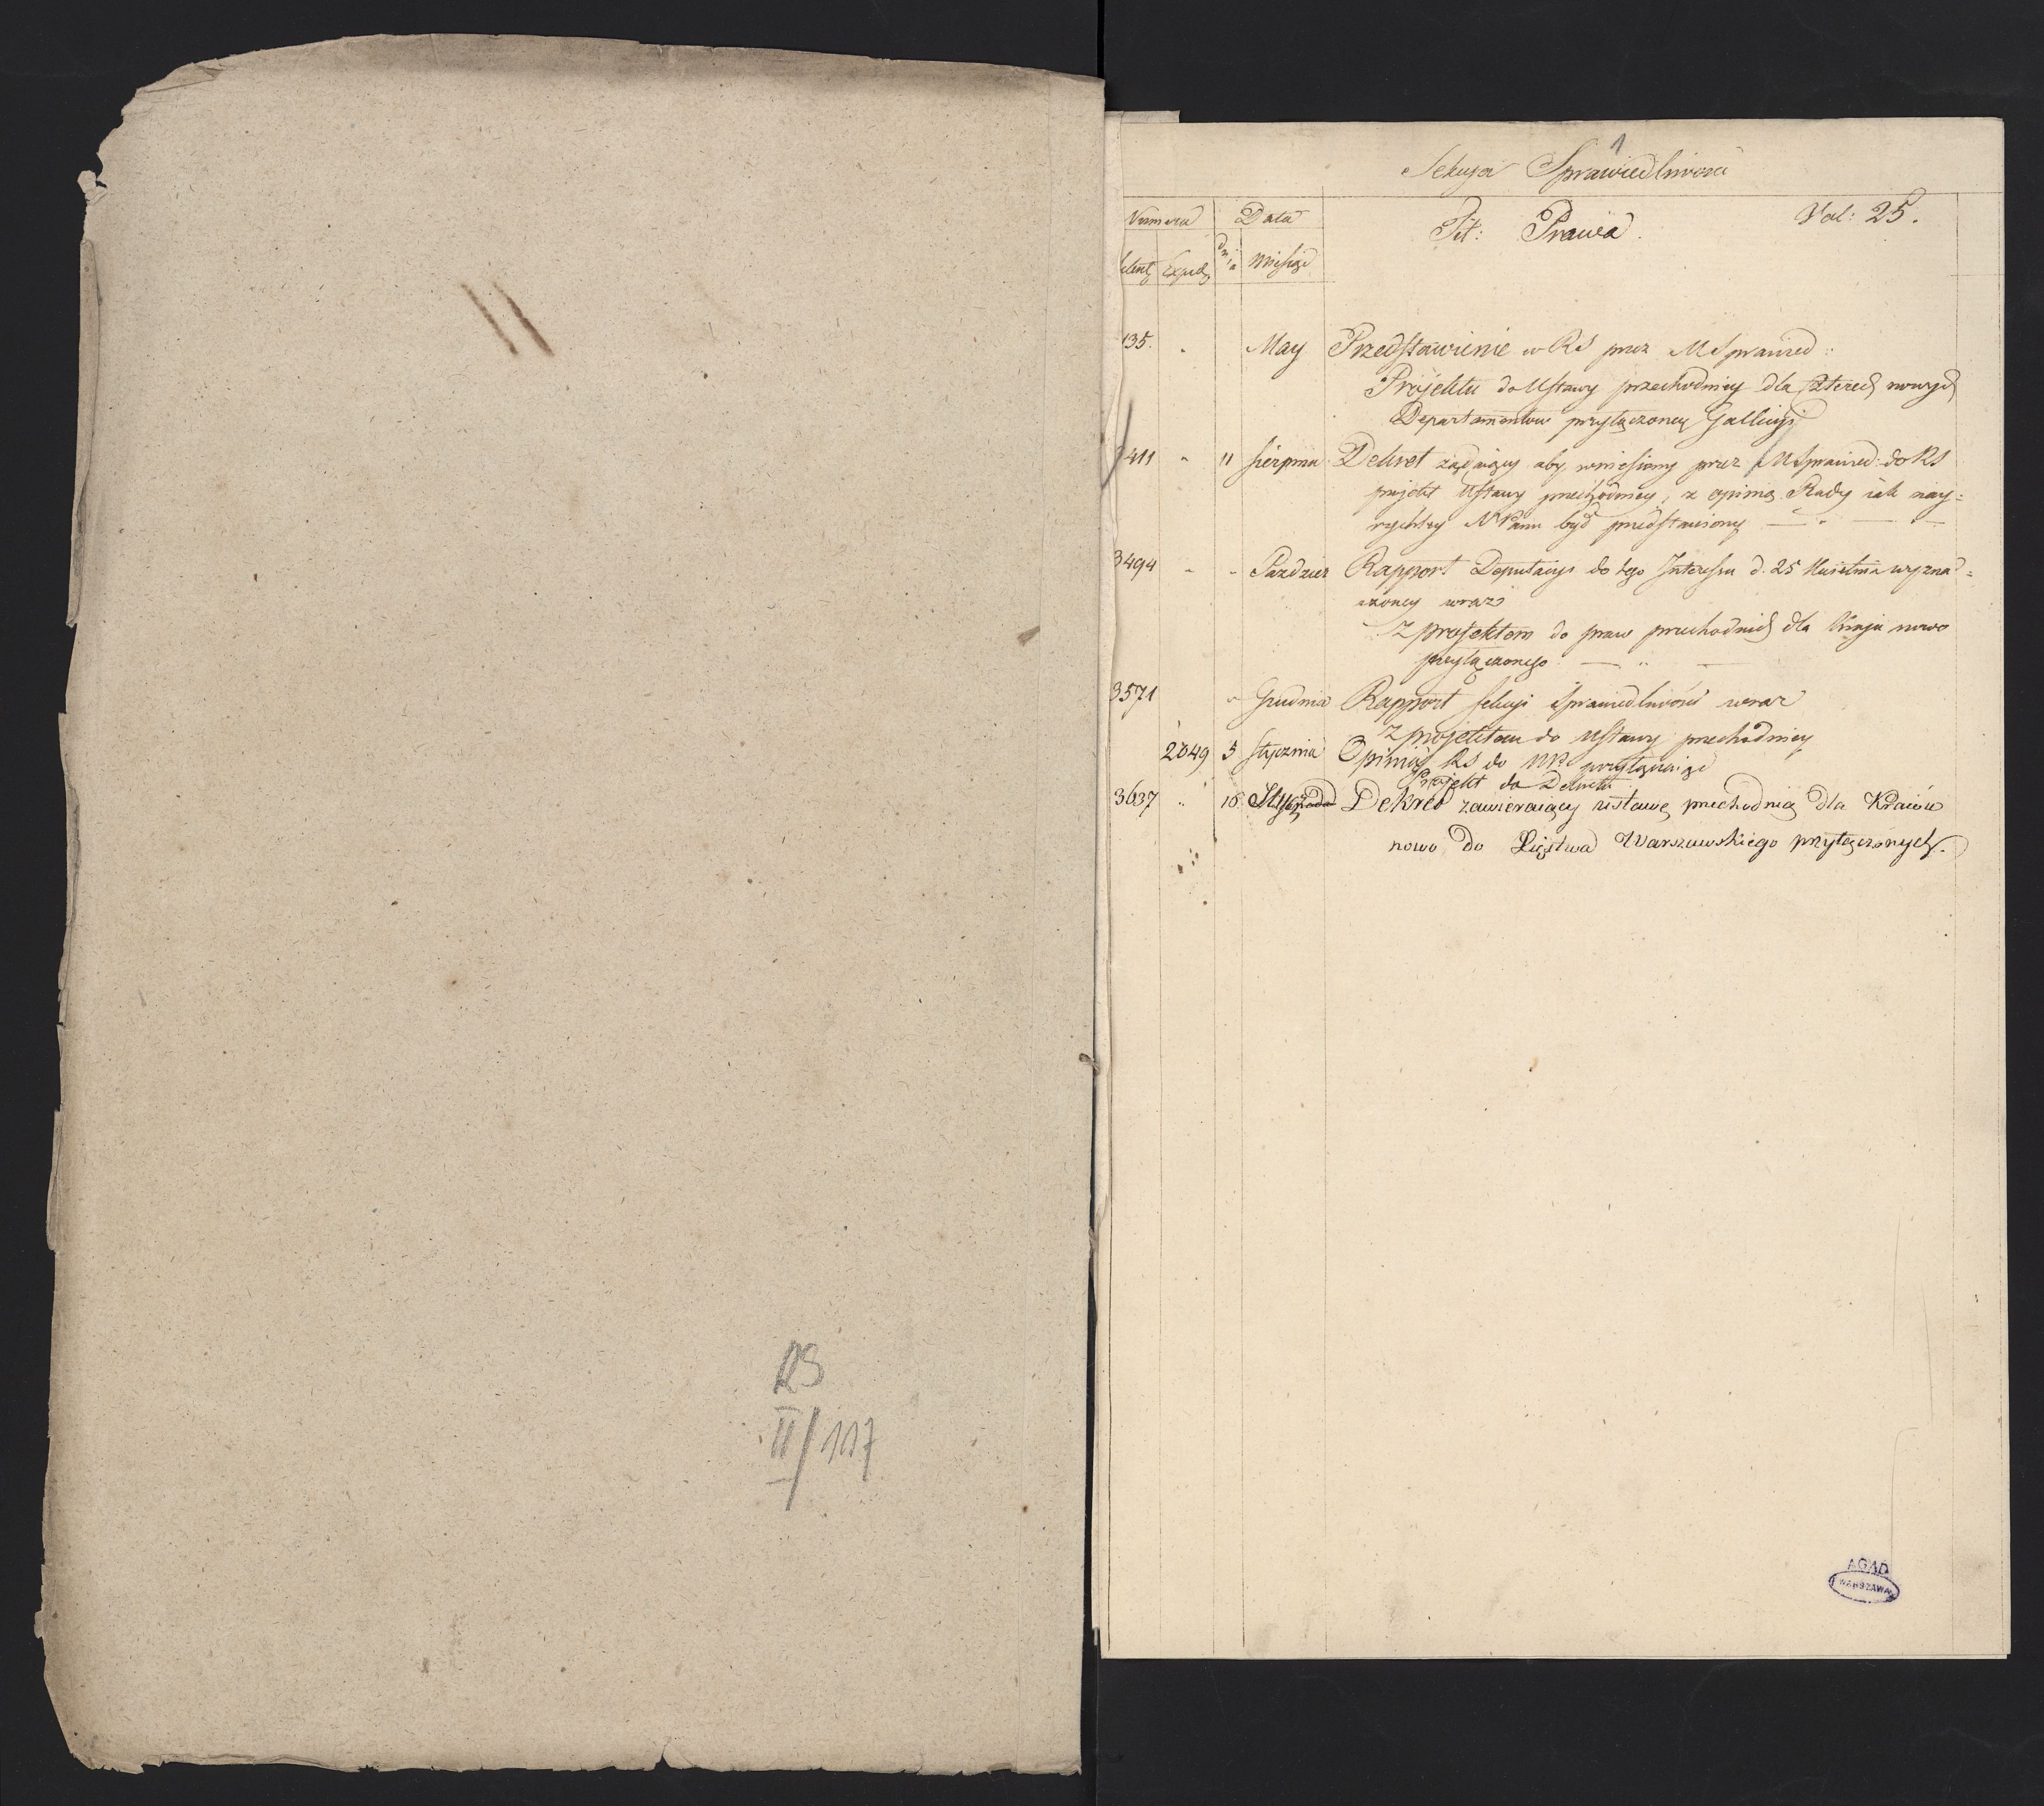 RS
II/117
1
Sekcya Sprawiedliwości
Numera Data Tit: Prawa. Vol: 25.
Expedy dnia Miesiąc
135. May Przedstawienie w RS przez M Sprawied:
Projektu do Ustawy przechodniey dla czterech nowych
Departamentow przyłączoney Gallicyi
411 " 11 Sierpnia Dekret żądaiący aby wniesiony przez M Sprawied: do RS
projekt Ustawy przechodniey, z opinią Rady iak nay=
rychley NPanu był przedstawiony
3494 " " Paździer Rapport Deputacyi do tego Interessu d. 25 Kwietnia wyzna=
czoney wraz
z projektem do praw przechodnich dla kraju nowo
przyłączonego
3571 " Grudnia Rapport Sekcyi Sprawiedliwości wraz
z projektem do Ustawy przechodniey
2049 5 Stycznia Opinia RS do NP. przyłączaiąc
Projekt do Dekretu
3637 " 16 Dekret zawieraiący ustawę przechodnią dla Kraiów
nowo do Xięstwa Warszawskiego przyłączonych.
AGAD
WARSZAWA